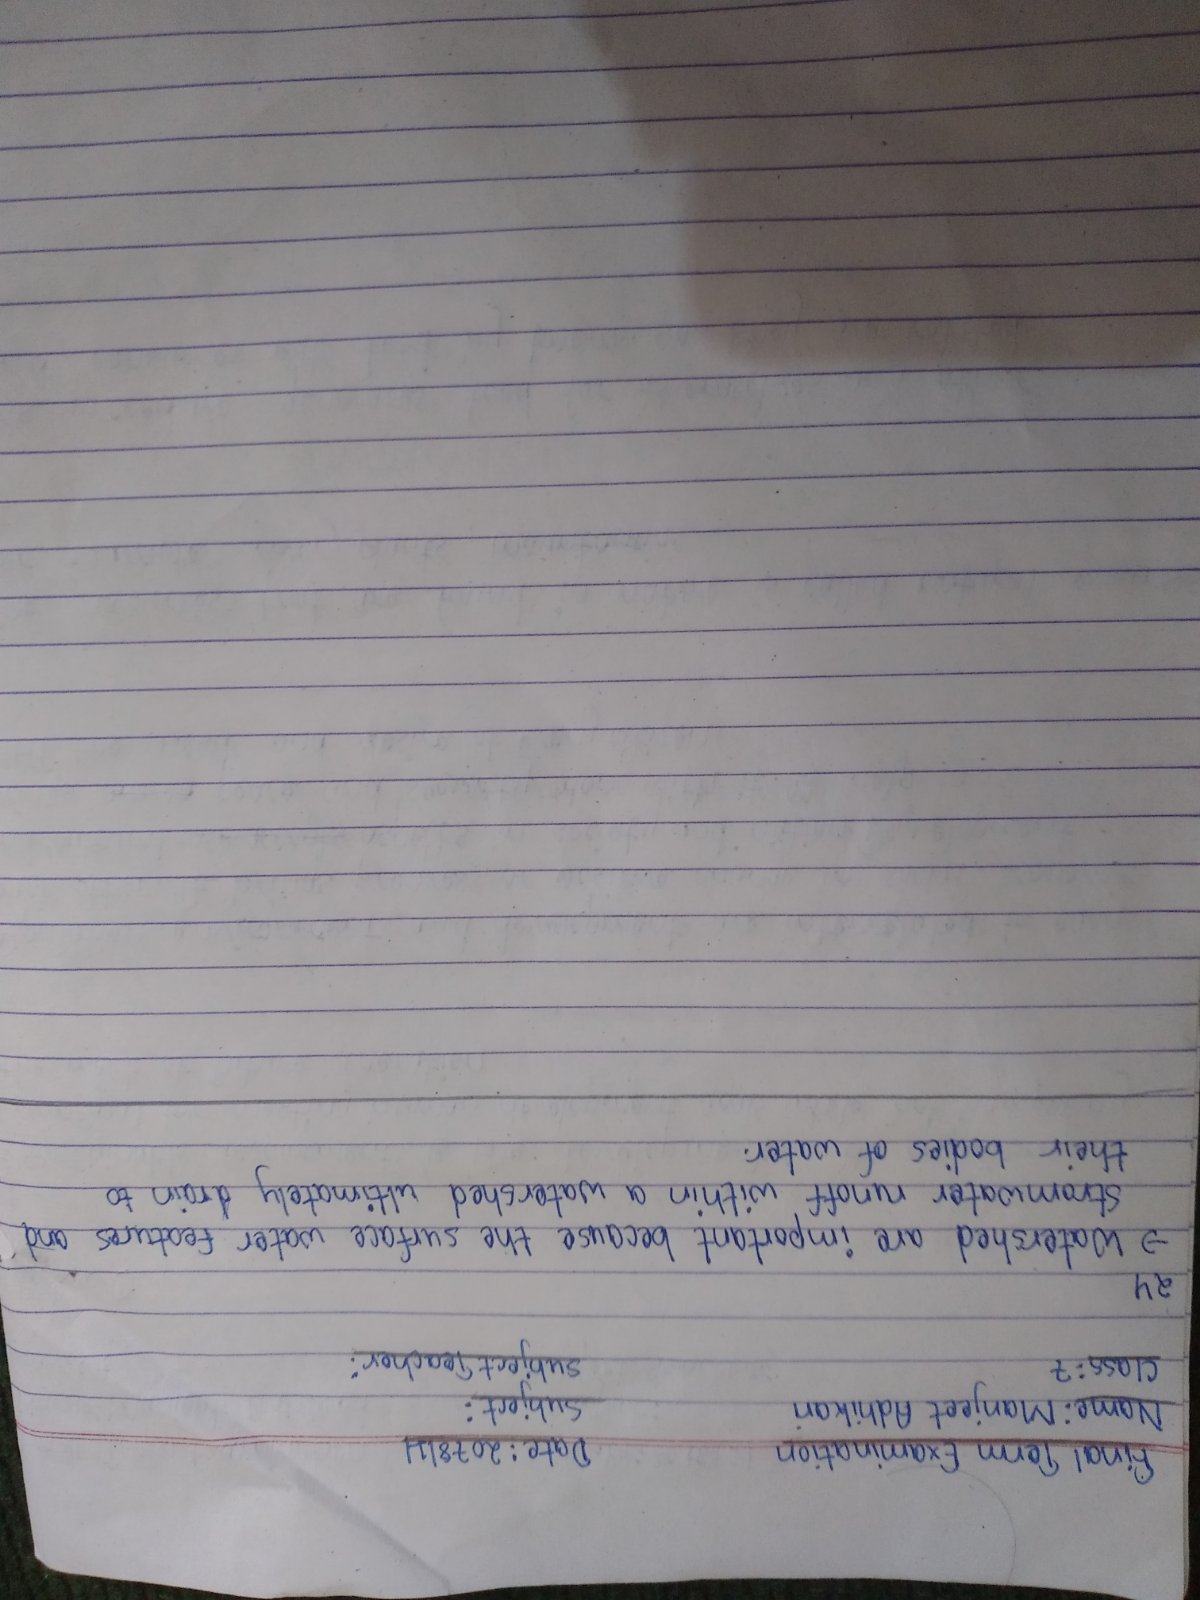 Final Term Examination Date: 2078/11
Name: Manjeet Adhikari Subject:
Class: 7 Subject Teacher:
24
⇒ Watershed are important because the surface water features and
stromwater runoff within a watershed ultimately drain to
their bodies of water.